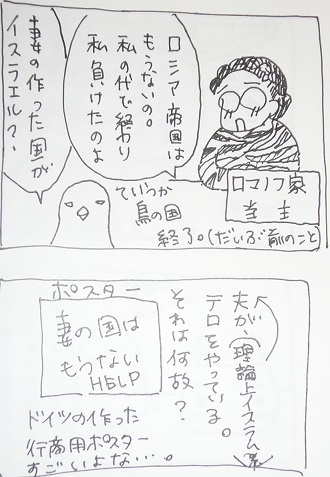 ロシア帝国は
もうないの。
私の代で終わり
私負けたのよ
妻の作った国が
イスラエル?
ロマノフ家
当主
ていうか
鳥の国
終了。(だいぶ前のこと
夫が、理論上イスラム系
テロをやっている。
それは何故?
ポスター
妻の国は
もうない
HELP
ドイツの作った
行商用ポスター
すごいよな…。